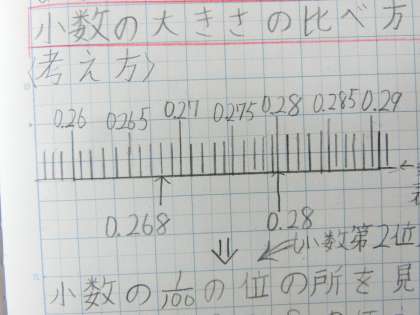 小数の大きさの比べ方
〈考え方〉
0.26 0.265 0.27 0.275 0.28 0.285 0.29
0.268 0.28
小数第2位
小数の1/100の位の所を見